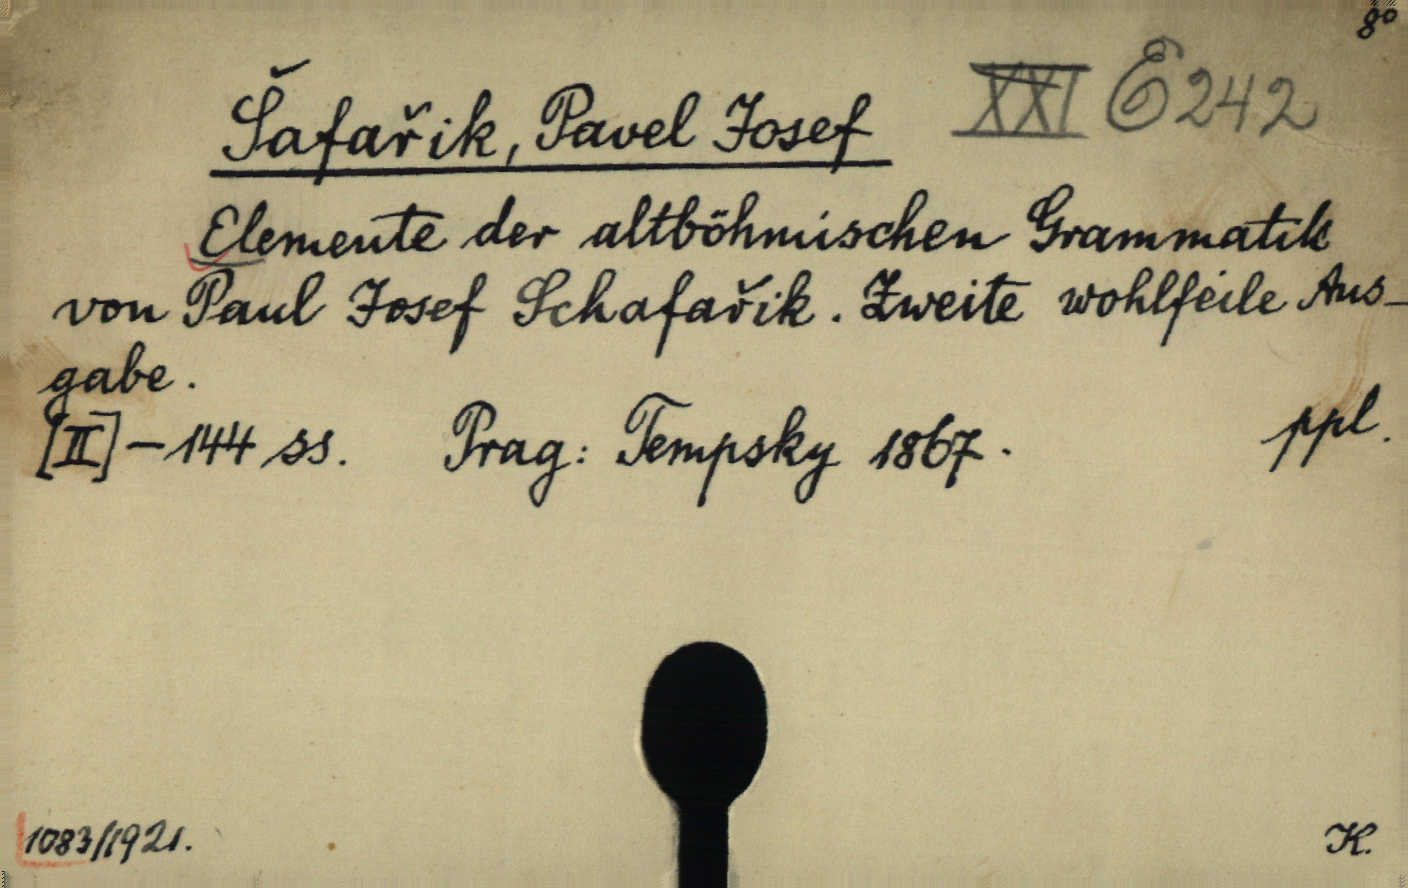 8°
XXI E 242
Šafařik, Pavel Josef
Elemente der altböhmischen Grammatik
von Paul Josef Schafařik. Zweite wohlfeile Aus-
gabe.
[II] – 144 ss. Prag: Tempsky 1867. ppl.
1083/1921. K.